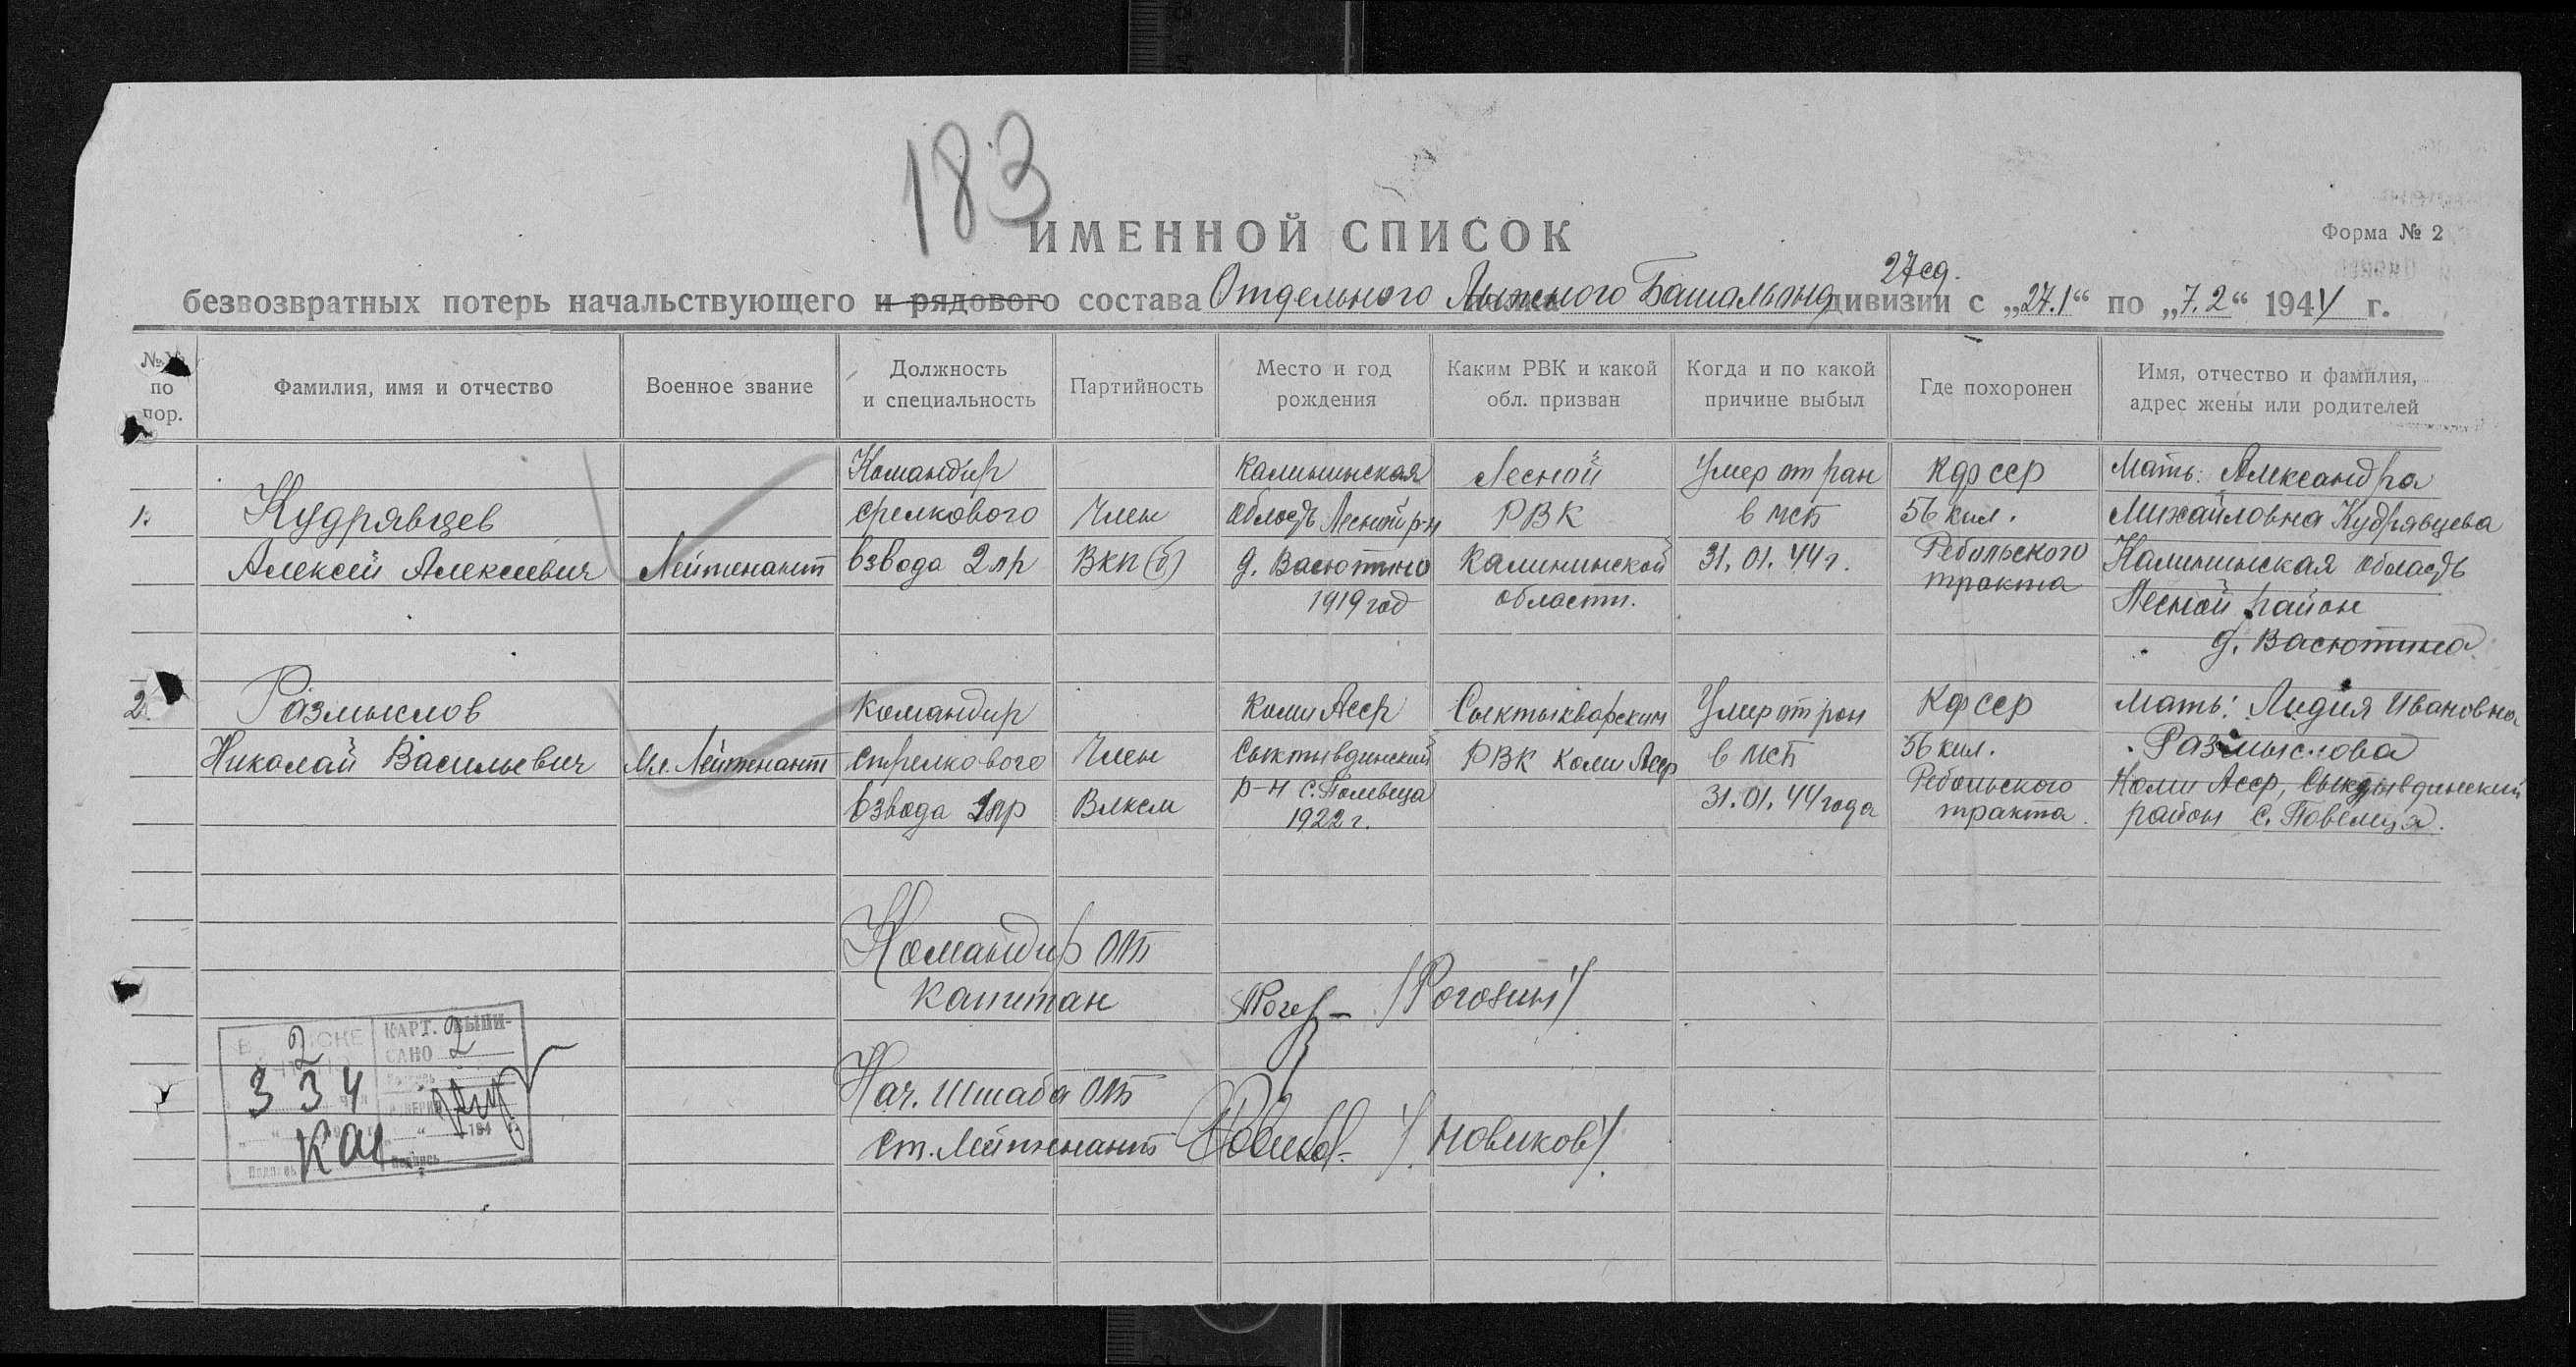 183
ИМЕННОЙ СПИСОК
Форма № 2
27 сд.
безвозвратных потерь начальствующего и рядового состава Отдельного Лыжного Батальона дивизии с „27.1“ по „7.2“ 1944 г.
№№ по пор.
Фамилия, имя и отчество
Военное звание
Должность и специальность
Партийность
Место и год рождения
Каким РВК и какой обл. призван
Когда и по какой причине выбыл
Где похоронен
Имя, отчество и фамилия, адрес жены или родителей
1.
Кудрявцев
Алексей Алексеевич
Лейтенант
Командир
срелкового
взвода 2 лр
Член
ВКП(б)
Калининская
область Лесной р-н
д. Васютино
1919 год
Лесной
РВК
Калининской
области.
Умер от ран
в МСБ
31.01.44 г.
КФССР
56 кил.
Ребольского
тракта
Мать: Александра
Михайловна Кудрявцева
Калининская область
Лесной район
д. Васютина
2.
Размыслов
Николай Васильевич
Мл. Лейтенант
Командир
стрелкового
взвода
Член
Влксм
Коми Асср
Сыктывдинский
р-н с. Полевеца
1922 г.
Сыктыкварским
РВК Коми Асср
Умер от ран
в МСБ
31.01.44 года
КФССР
56 кил.
Ребольского
тракта.
Мать: Лидия Ивановна
Размыслова
Коми Асср, Сыктывдинский
район с. Повелица.
Командир ОЛБ
Капитан
/Рогозин/
Нач. Штаба ОЛБ
Ст. Лейтенант
/Новиков/.
КАРТ. ВЫПИ-
САНО 2
2
334
194
Подпись
Подпись